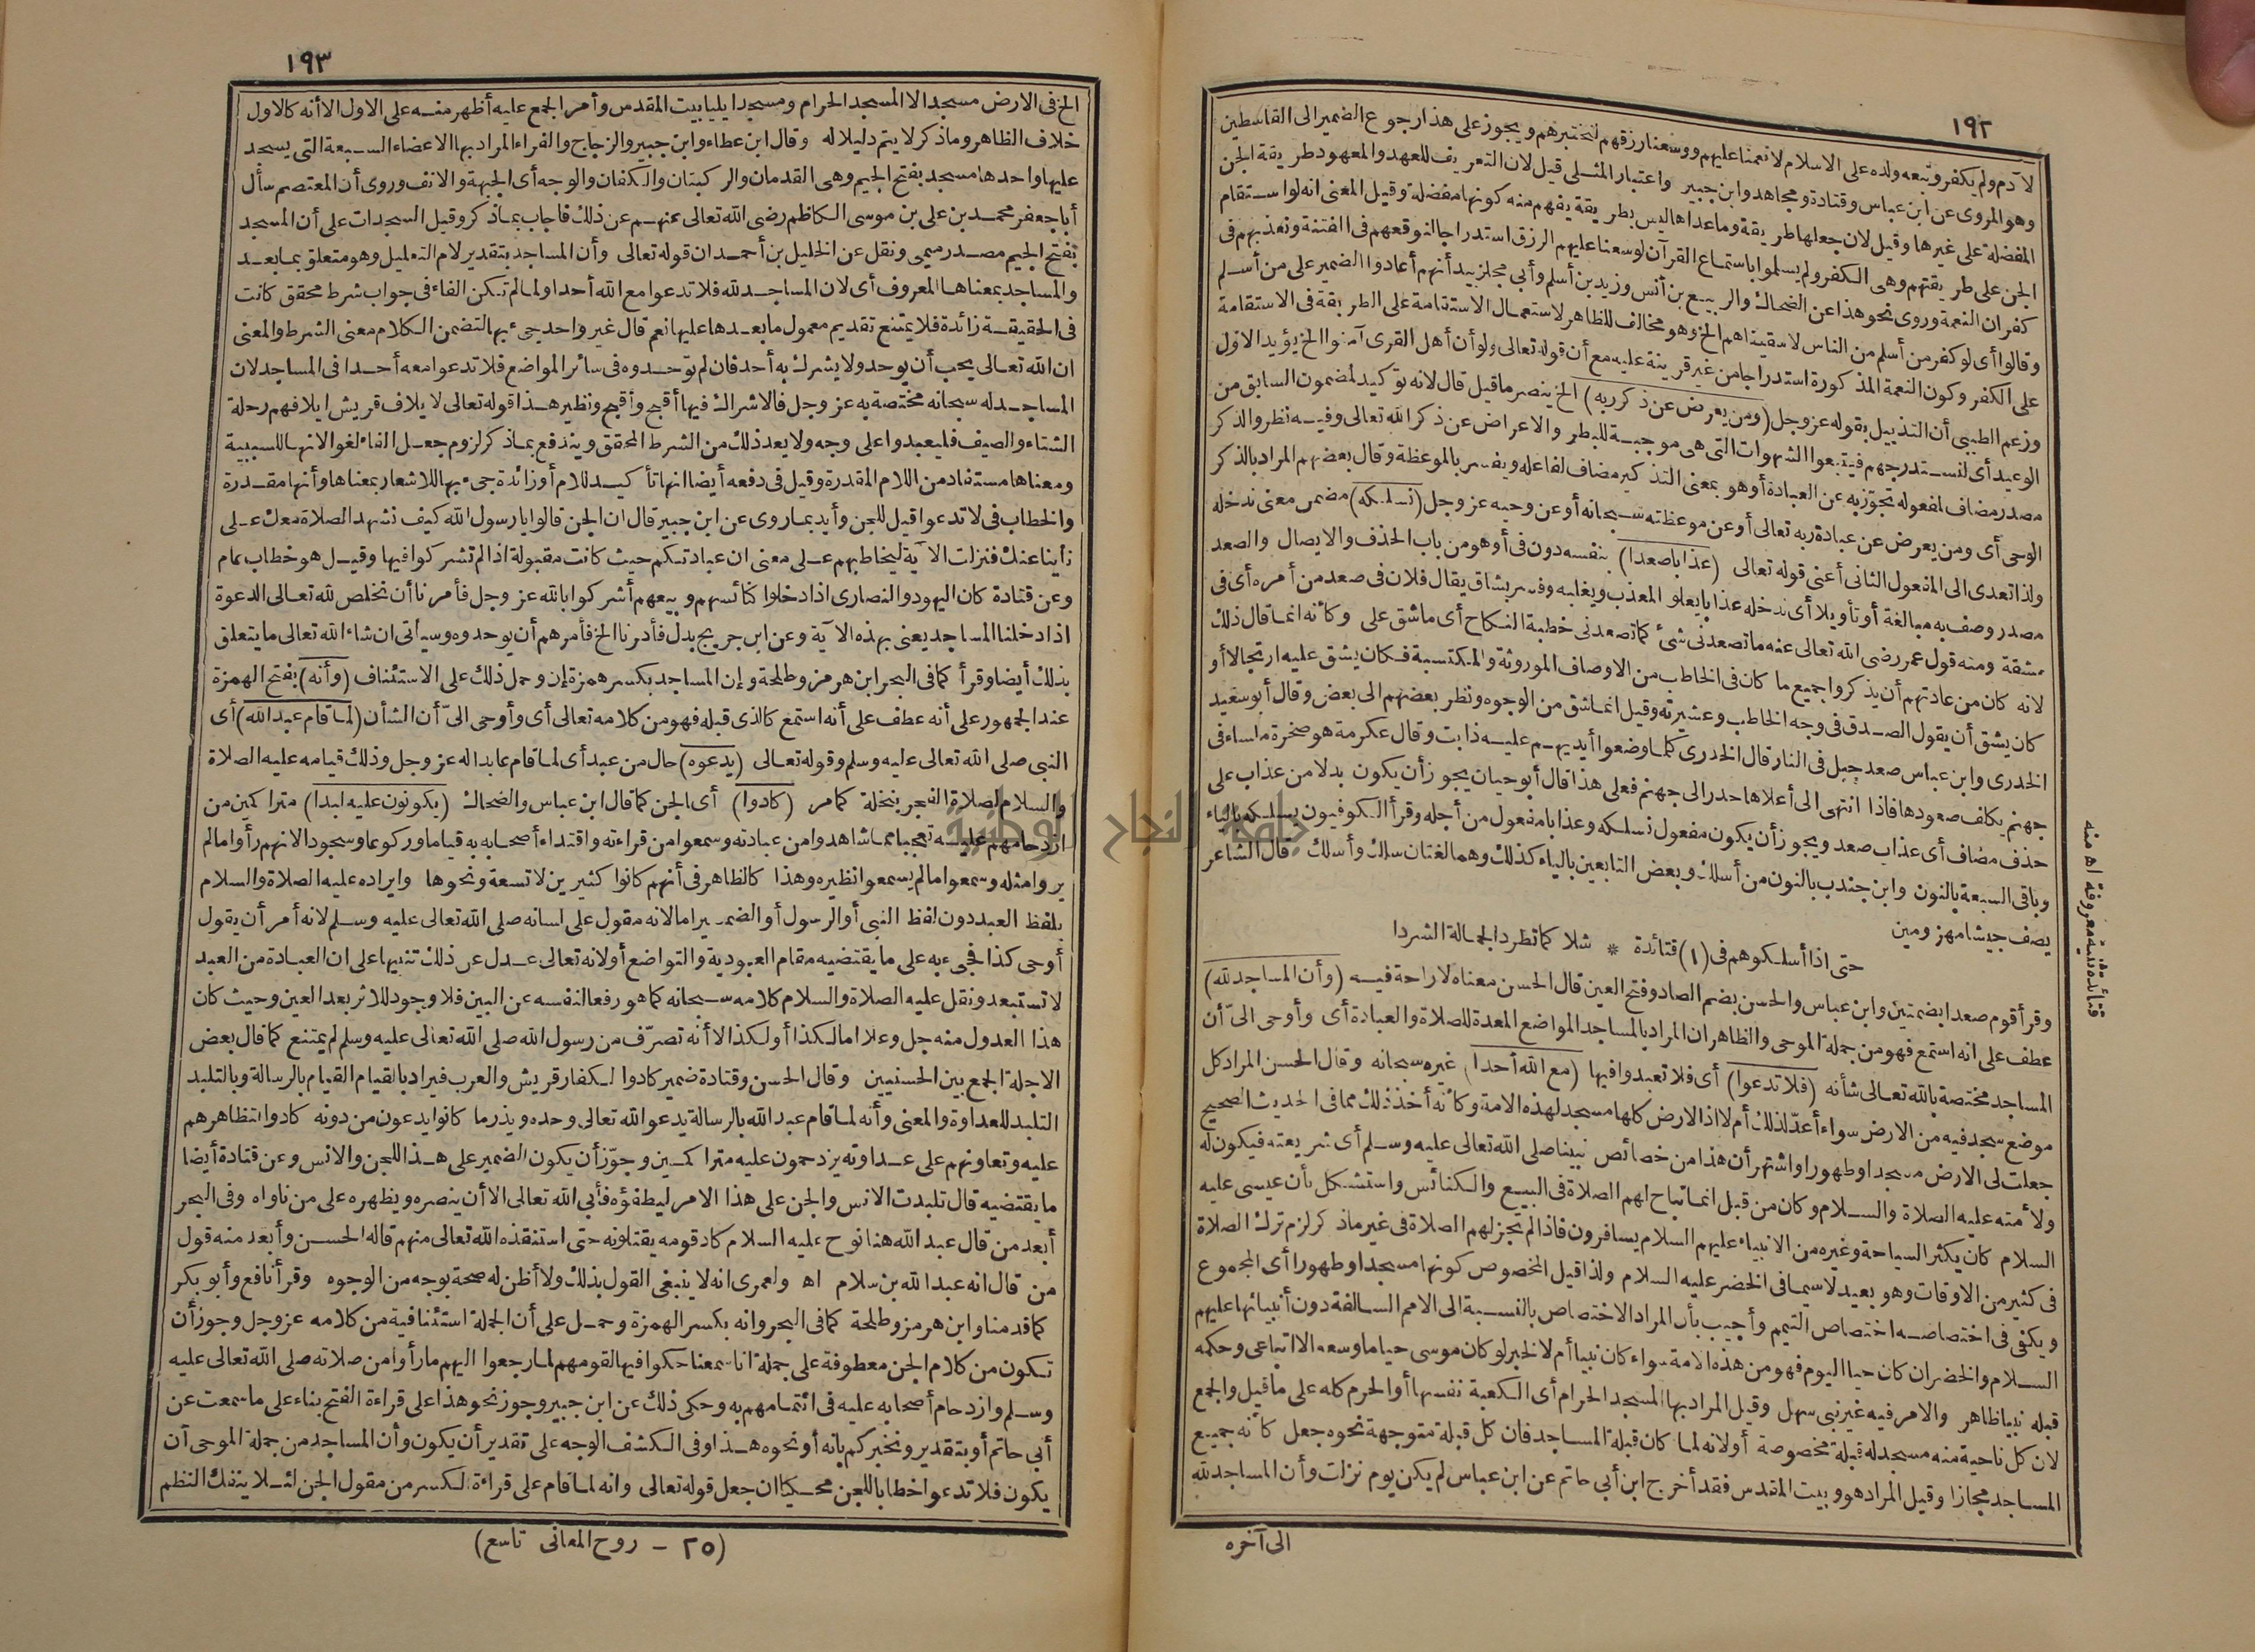 ١٩٢
لآدم ولم يكفر وتبعه ولده على الاسلام لأنعمنا عليهم ووسعنا رزقهم لنختبرهم ويجوز على هذا رجوع الضمير الى القاسطين
وهو المروى عن ابن عباس وقتادة ومجاهد وابن جبير واعتبار المثلى قيل لان التعريف للعهد والمعهود طريقة الجن
المفضلة على غيرها وقيل لان جعلها طريقة وما عداها ليس بطريقة يفهم منه كونها مفضلة وقيل المعنى انه لو استقام
الجن على طريقتهم وهى الكفر ولم يسلموا باستماع القرآن لوسعنا عليهم الرزق استدراجا لنوقعهم فى الفتنة ونعذبهم فى
كفران النعمة وروى نحو هذا عن الضحاك والربيع بن أنس وزيد بن أسلم وأبى مجلز بيد أنهم أعادوا الضمير على من أسلم
وقالوا أى لو كفر من أسلم من الناس لأسقيناهم الخ وهو مخالف للظاهر لاستعمال الاستقامة على الطريقة فى الاستقامة
على الكفر وكون النعمة المذكورة استدراجا من غير قرينة عليه مع أن قوله تعالى ولو أن أهل القرى آمنوا الخ يؤيد الاول
وزعم الطيبى أن التذييل بقوله عز وجل (ومن يعرض عن ذكر ربه) الخ ينصر ما قيل قال لانه توكيد لمضمون السابق من
الوعيد أى لنستدرجهم فيتبعوا الشهوات التى هى موجبة للبطر والاعراض عن ذكر الله تعالى وفيه نظر والذكر
مصدر مضاف لمفعوله تجوّز به عن العبادة أو هو بمعنى التذكير مضاف لفاعله ويفسر بالموعظة وقال بعضهم المراد بالذكر
الوحى أى ومن يعرض عن عبادة ربه تعالى أو عن موعظته سبحانه أو عن وحيه عز وجل (نسلكه) مضمن معنى ندخله
ولذا تعدى الى المفعول الثانى أعنى قوله تعالى (عذابا صعدا) بنفسه دون فى أو هو من باب الحذف والايصال والصعد
مصدر وصف به مبالغة أو تأويلا أى ندخله عذابا يعلو المعذب ويغلبه وفسر بشاق يقال فلان فى صعد من أمره أى فى
مشقة ومنه قول عمر رضى الله تعالى عنه ما تصعدنى شئ كما تصعدنى خطبة النكاح أى ما شق على وكأنه انما قال ذلك
لانه كان من عادتهم أن يذكروا جميع ما كان فى الخاطب من الاوصاف الموروثة والمكتسبة فكان يشق عليه ارتجالا أو
كان يشق أن يقول الصدق فى وجه الخاطب وعشيرته وقيل انما شق من الوجوه ونظر بعضهم الى بعض وقال أبو سعيد
الخدرى وابن عباس صعد جبل فى النار قال الخدرى كلما وضعوا أيديهم عليه ذابت وقال عكرمة هو صخرة ملساء فى
جهنم يكلف صعودها فاذا انتهى الى أعلاها حدر الى جهنم فعلى هذا قال أبو حيان يجوز أن يكون بدلا من عذاب على
حذف مضاف أى عذاب صعد ويجوز أن يكون مفعول نسلكه وعذابا مفعول من أجله وقرأ الكوفيون يسلكه بالياء
وباقى السبعة بالنون وابن جندب بالنون من أسلك وبعض التابعين بالياء كذلك وهما لغتان سلك وأسلك قال الشاعر
يصف جيشا مهزومين
حتى اذا أسلكوهم فى (١) قتائدة * شلا كما تطرد الجمالة الشردا
وقرأ قوم صعدا بضمتين وابن عباس والحسن بضم الصاد وفتح العين قال الحسن معناه لا راحة فيه (وأن المساجد لله)
عطف على انه استمع فهو من جملة الموحى والظاهر ان المراد بالمساجد المواضع المعدة للصلاة والعبادة أى وأوحى الىّ أن
المساجد مختصة بالله تعالى شأنه (فلا تدعوا) أى فلا تعبدوا فيها (مع الله أحدا) غيره سبحانه وقال الحسن المراد كل
موضع سجد فيه من الارض سواء أعدّ لذلك أم لا اذ الارض كلها مسجد لهذه الامة وكأنه أخذ ذلك مما فى الحديث الصحيح
جعلت لى الارض مسجدا وطهورا واشتهر أن هذا من خصائص نبينا صلى الله تعالى عليه وسلم أى شريعته فيكون له
ولأمته عليه الصلاة والسلام وكان من قبل انما تباح لهم الصلاة فى البيع والكنائس واستشكل بأن عيسى عليه
السلام كان يكثر السياحة وغيره من الانبياء عليهم السلام يسافرون فاذا لم تجز لهم الصلاة فى غير ما ذكر لزم ترك الصلاة
فى كثير من الاوقات وهو بعيد لا سيما فى الخضر عليه السلام ولذا قيل المخصوص كونها مسجدا وطهورا أى المجموع
ويكفى فى اختصاصه اختصاص التيمم وأجيب بأن المراد الاختصاص بالنسبة الى الامم السالفة دون أنبيائها عليهم
السلام والخضر ان كان حيا اليوم فهو من هذه الامة سواء كان نبيا أم لا لخبر لو كان موسى حيا ما وسعه الا اتباعى وحكمه
قبله نبيا ظاهر والامر فيه غير نبى سهل وقيل المراد بها المسجد الحرام أى الكعبة نفسها أو الحرم كله على ما قيل والجمع
لان كل ناحية منه مسجد له قبلة مخصوصة أو لانه لما كان قبلة المساجد فان كل قبلة متوجهة نحوه جعل كأنه جميع
المساجد مجازا وقيل المراد هو وبيت المقدس فقد أخرج ابن أبى حاتم عن ابن عباس لم يكن يوم نزلت وأن المساجد لله
الى آخره
قتائدة ثنية معروفة اه منه
١٩٣
الخ فى الارض مسجد الا المسجد الحرام ومسجد ايليا بيت المقدس وأمر الجمع عليه أظهر منه على الاول الا أنه كالاول
خلاف الظاهر وما ذكر لا يتم دليلا له وقال ابن عطاء وابن جبير والزجاج والفراء المراد بها الاعضاء السبعة التى يسجد
عليها واحدها مسجد بفتح الجيم وهى القدمان والركبتان والكفان والوجه أى الجبهة والانف وروى أن المعتصم سأل
أبا جعفر محمد بن على بن موسى الكاظم رضى الله تعالى عنهم عن ذلك فأجاب بما ذكر وقيل السجدات على أن المسجد
بفتح الجيم مصدر ميمى ونقل عن الخليل بن أحمد ان قوله تعالى وأن المساجد بتقدير لام التعليل وهو متعلق بما بعد
والمساجد بمعناها المعروف أى لان المساجد لله فلا تدعوا مع الله أحدا ولما لم تكن الفاء فى جواب شرط محقق كانت
فى الحقيقة زائدة فلا يمتنع تقديم معمول ما بعدها عليها نعم قال غير واحد جىء بها لتضمن الكلام معنى الشرط والمعنى
ان الله تعالى يحب أن يوحد ولا يشرك به أحد فان لم توحدوه فى سائر المواضع فلا تدعوا معه أحدا فى المساجد لان
المساجد له سبحانه مختصة به عز وجل فالاشراك فيها أقبح وأقبح ونظير هذا قوله تعالى لايلاف قريش ايلافهم رحلة
الشتاء والصيف فليعبدوا على وجه ولا يعد ذلك من الشرط المحقق ويندفع بما ذكر لزوم جعل الفاء لغوا لانها للسببية
ومعناها مستفاد من اللام المقدرة وقيل فى دفعه أيضا انها تأكيد للام أو زائدة جىء بها للاشعار بمعناها وأنها مقدرة
والخطاب فى لا تدعوا قيل للجن وأيد بما روى عن ابن جبير قال ان الجن قالوا يا رسول الله كيف نشهد الصلاة معك على
نأينا عنك فنزلت الآية ليخاطبهم على معنى ان عبادتكم حيث كانت مقبولة اذا لم تشركوا فيها وقيل هو خطاب عام
وعن قتادة كان اليهود والنصارى اذا دخلوا كنائسهم وبيعهم أشركوا بالله عز وجل فأمرنا أن نخلص لله تعالى الدعوة
اذا دخلنا المساجد يعنى بهذه الآية وعن ابن جريج بدل فأمرنا الخ فأمرهم أن يوحدوه وسيأتى ان شاء الله تعالى ما يتعلق
بذلك أيضا وقرأ كما فى البحر ابن هرمز وطلحة وإن المساجد بكسر همزة إن وحمل ذلك على الاستئناف (وأنه) بفتح الهمزة
عند الجمهور على أنه عطف على أنه استمع كالذى قبله فهو من كلامه تعالى أى وأوحى الىّ أن الشأن (لما قام عبد الله) أى
النبى صلى الله تعالى عليه وسلم وقوله تعالى (يدعوه) حال من عبد أى لما قام عابدا له عز وجل وذلك قيامه عليه الصلاة
والسلام لصلاة الفجر بنخلة كما مر (كادوا) أى الجن كما قال ابن عباس والضحاك (يكونون عليه لبدا) متراكمين من
ازدحامهم عليه تعجبا مما شاهدوا من عبادته وسمعوا من قراءته واقتداء أصحابه به قياما وركوعا وسجودا لانهم رأوا ما لم
يروا مثله وسمعوا ما لم يسمعوا نظيره وهذا كالظاهر فى أنهم كانوا كثيرين لا تسعة ونحوها وايراده عليه الصلاة والسلام
بلفظ العبد دون لفظ النبى أو الرسول أو الضمير اما لانه مقول على لسانه صلى الله تعالى عليه وسلم لانه أمر أن يقول
أوحى كذا فجىء به على ما يقتضيه مقام العبودية والتواضع أو لانه تعالى عدل عن ذلك تنبيها على ان العبادة من العبد
لا تستبعد ونقل عليه الصلاة والسلام كلامه سبحانه كما هو رفعا لنفسه عن البين فلا وجود للاثر بعد العين وحيث كان
هذا العدول منه جل وعلا اما لكذا أو لكذا لا أنه تصرّف من رسول الله صلى الله تعالى عليه وسلم لم يمتنع كما قال بعض
الاجلة الجمع بين الحسنيين وقال الحسن وقتادة ضمير كادوا لكفار قريش والعرب فيراد بالقيام القيام بالرسالة وبالتلبد
التلبد للعداوة والمعنى وأنه لما قام عبد الله بالرسالة يدعو الله تعالى وحده ويذر ما كانوا يدعون من دونه كادوا لتظاهرهم
عليه وتعاونهم على عداوته يزدحمون عليه متراكمين وجوّز أن يكون الضمير على هذا للجن والانس وعن قتادة أيضا
ما يقتضيه قال تلبدت الانس والجن على هذا الامر ليطفؤه فأبى الله تعالى الا أن ينصره ويظهره على من ناواه وفى البحر
أبعد من قال عبد الله هنا نوح عليه السلام كاد قومه يقتلونه حتى استنقذه الله تعالى منهم قاله الحسن وأبعد منه قول
من قال انه عبد الله بن سلام اه ولعمرى انه لا ينبغى القول بذلك ولا أظن له صحة بوجه من الوجوه وقرأ نافع وأبو بكر
كما قدمنا وابن هرمز وطلحة كما فى البحر وانه بكسر الهمزة وحمل على أن الجملة استئنافية من كلامه عز وجل وجوز أن
تكون من كلام الجن معطوفة على جملة انا سمعنا حكوا فيها لقومهم لما رجعوا اليهم ما رأوا من صلاته صلى الله تعالى عليه
وسلم وازدحام أصحابه عليه فى ائتمامهم به وحكى ذلك عن ابن جبير وجوز نحو هذا على قراءة الفتح بناء على ما سمعت عن
أبى حاتم أو بتقدير ونخبركم بانه أو نحوه هذا وفى الكشف الوجه على تقدير أن يكون وأن المساجد من جملة الموحى أن
يكون فلا تدعوا خطابا للجن محكيا ان جعل قوله تعالى وانه لما قام على قراءة الكسر من مقول الجن لئلا ينفك النظم
(٢٥ – روح المعانى تاسع)
جامعة النجاح الوطنية